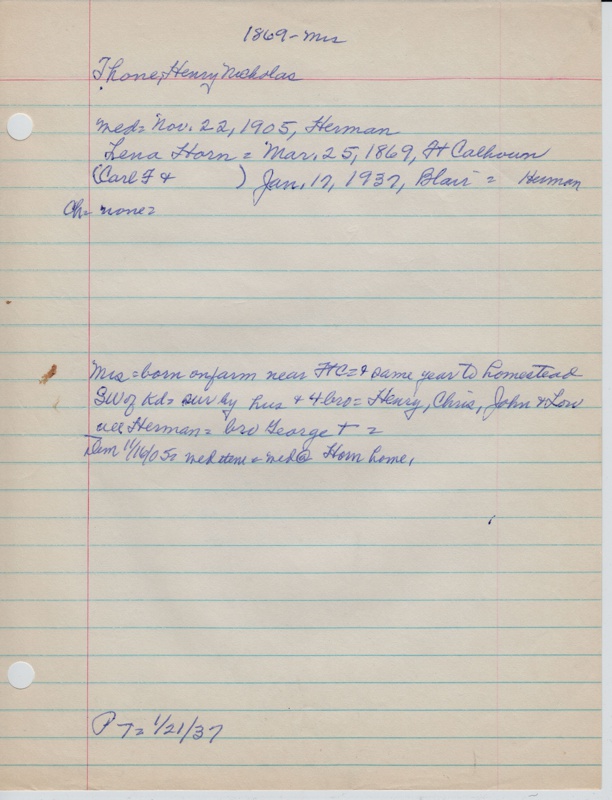 1869 - Mrs
Thone, Henry Nicholas
Med= Nov. 22, 1905, Herman
Lena Horn = Mar. 25, 1869, Ft Calhoun
(Carl F & ) Jan. 17, 1937, Blair = Herman
Ch= none=
Mrs = born on farm near Ft C= & same year to homestead
SW of Kd= sur by hus & 4 bro= Henry, Chris, John & Lou
all Herman= bro George + =
11/16/05= Med @ Horn home.
P T= 1/21/37